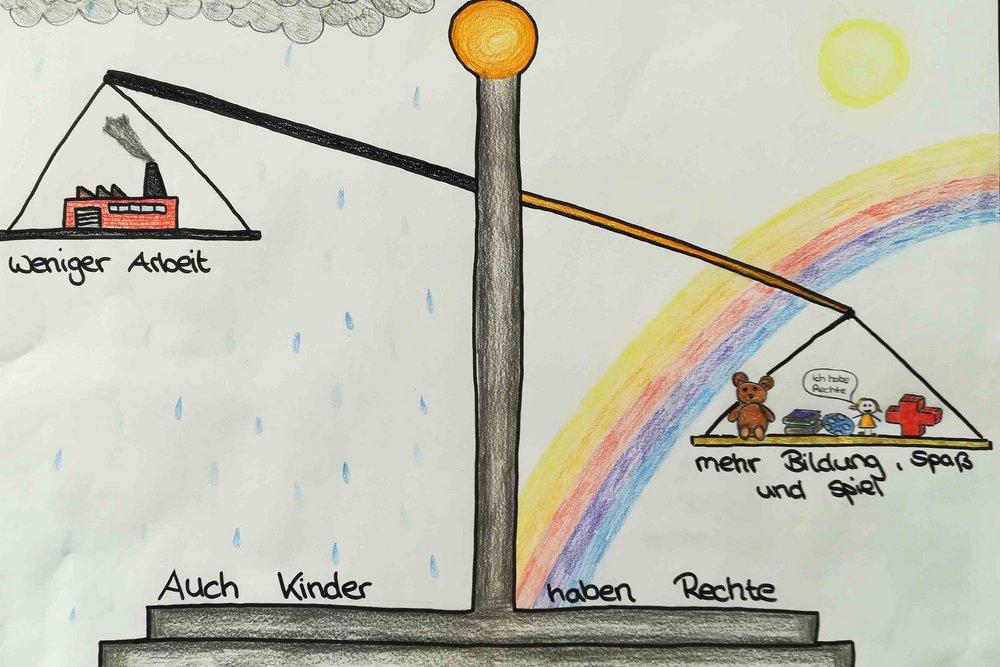 Weniger Arbeit
Ich habe
Rechte
mehr Bildung, Spaß
und Spiel
Auch Kinder haben Rechte